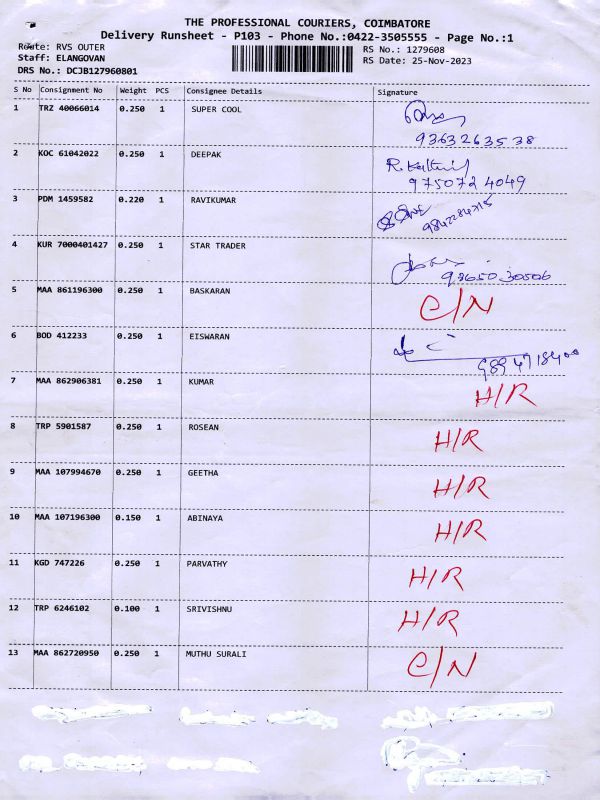 THE PROFESSIONAL COURIERS, COIMBATORE
Delivery Runsheet - P103 - Phone No.:0422-3505555 - Page No.:1
Route: RVS OUTER
RS No.: 1279608
Staff: ELANGOVAN
RS Date: 25-Nov-2023
DRS No.: DCJB127960801
S No Consignment No Weight PCS Consignee Details Signature
1 TRZ 40066014 0.250 1 SUPER COOL
9363263538
2 KOC 61042022 0.250 1 DEEPAK
9750724049
3 PDM 1459582 0.220 1 RAVIKUMAR
4 KUR 7000401427 0.250 1 STAR TRADER
93650 30506
5 MAA 861196300 0.250 1 BASKARAN C/N
6 BOD 412233 0.250 1 EISWARAN
9894718400
7 MAA 862906381 0.250 1 KUMAR H/R
8 TRP 5901587 0.250 1 ROSEAN H/R
9 MAA 107994670 0.250 1 GEETHA H/R
10 MAA 107196300 0.150 1 ABINAYA H/R
11 KGD 747226 0.250 1 PARVATHY H/R
12 TRP 6246102 0.100 1 SRIVISHNU H/R
13 MAA 862720950 0.250 1 MUTHU SURALI C/N